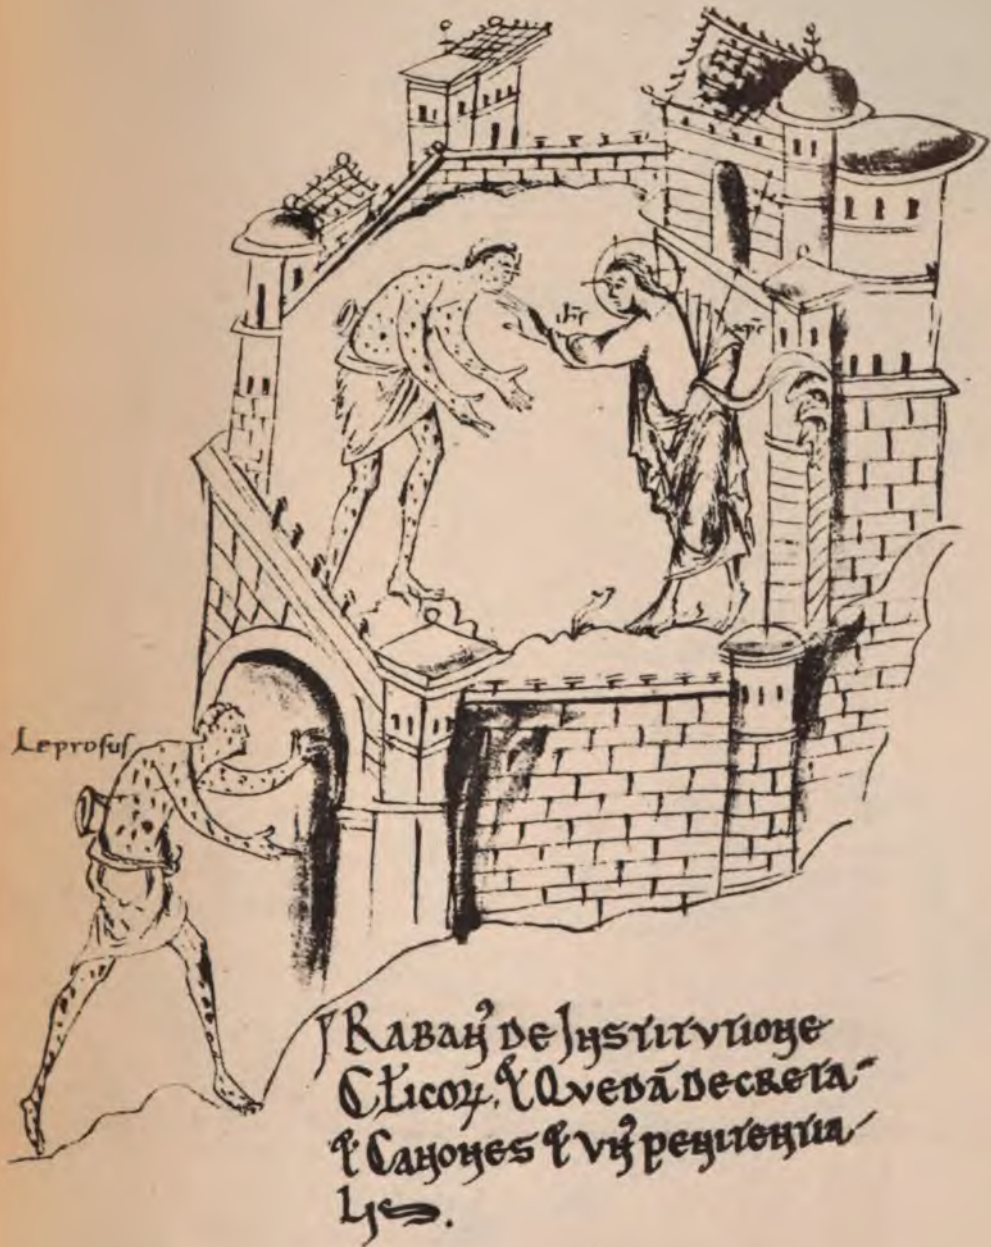 ih̄c xp̄c
Leproſuſ
RABANꝰ DE INSTITVTIONE
CL̄ICOꝜ. ⁊ QVEDĀ DECRETA
⁊ CANONES ⁊ VNꝰ PENITENTIA
LIS.